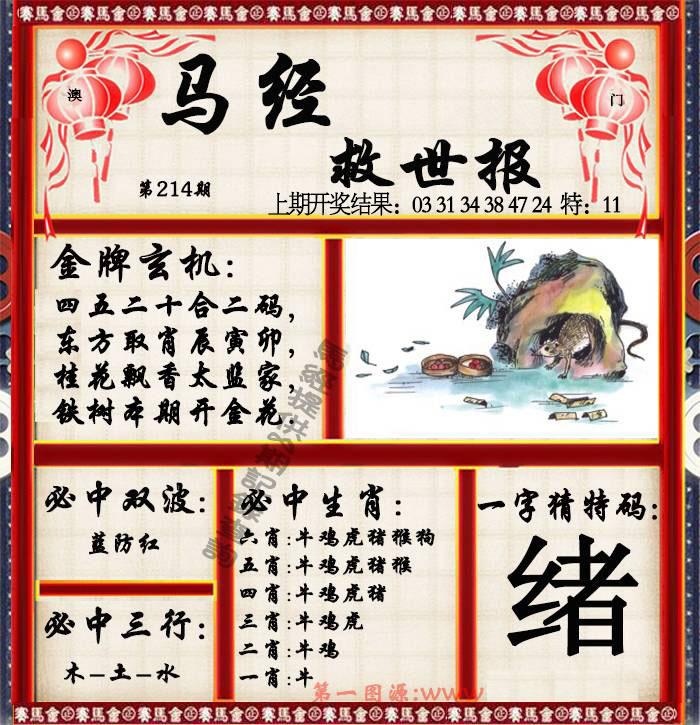 賽馬會 賽馬會 賽馬會 賽馬會 賽馬會 賽馬會 賽馬會 賽馬會 賽馬會
澳
门
马经
救世报
第214期
上期开奖结果：03 31 34 38 47 24 特：11
金牌玄机：
四五二十合二码，
东方取肖辰寅卯，
桂花飘香太监家，
铁树本期开金花．
必中双波：
蓝防红
必中三行：
木-土-水
必中生肖：
六肖：牛鸡虎猪猴狗
五肖：牛鸡虎猪猴
四肖：牛鸡虎猪
三肖：牛鸡虎
二肖：牛鸡
一肖：牛
一字猜特码：
绪
第一图源:www